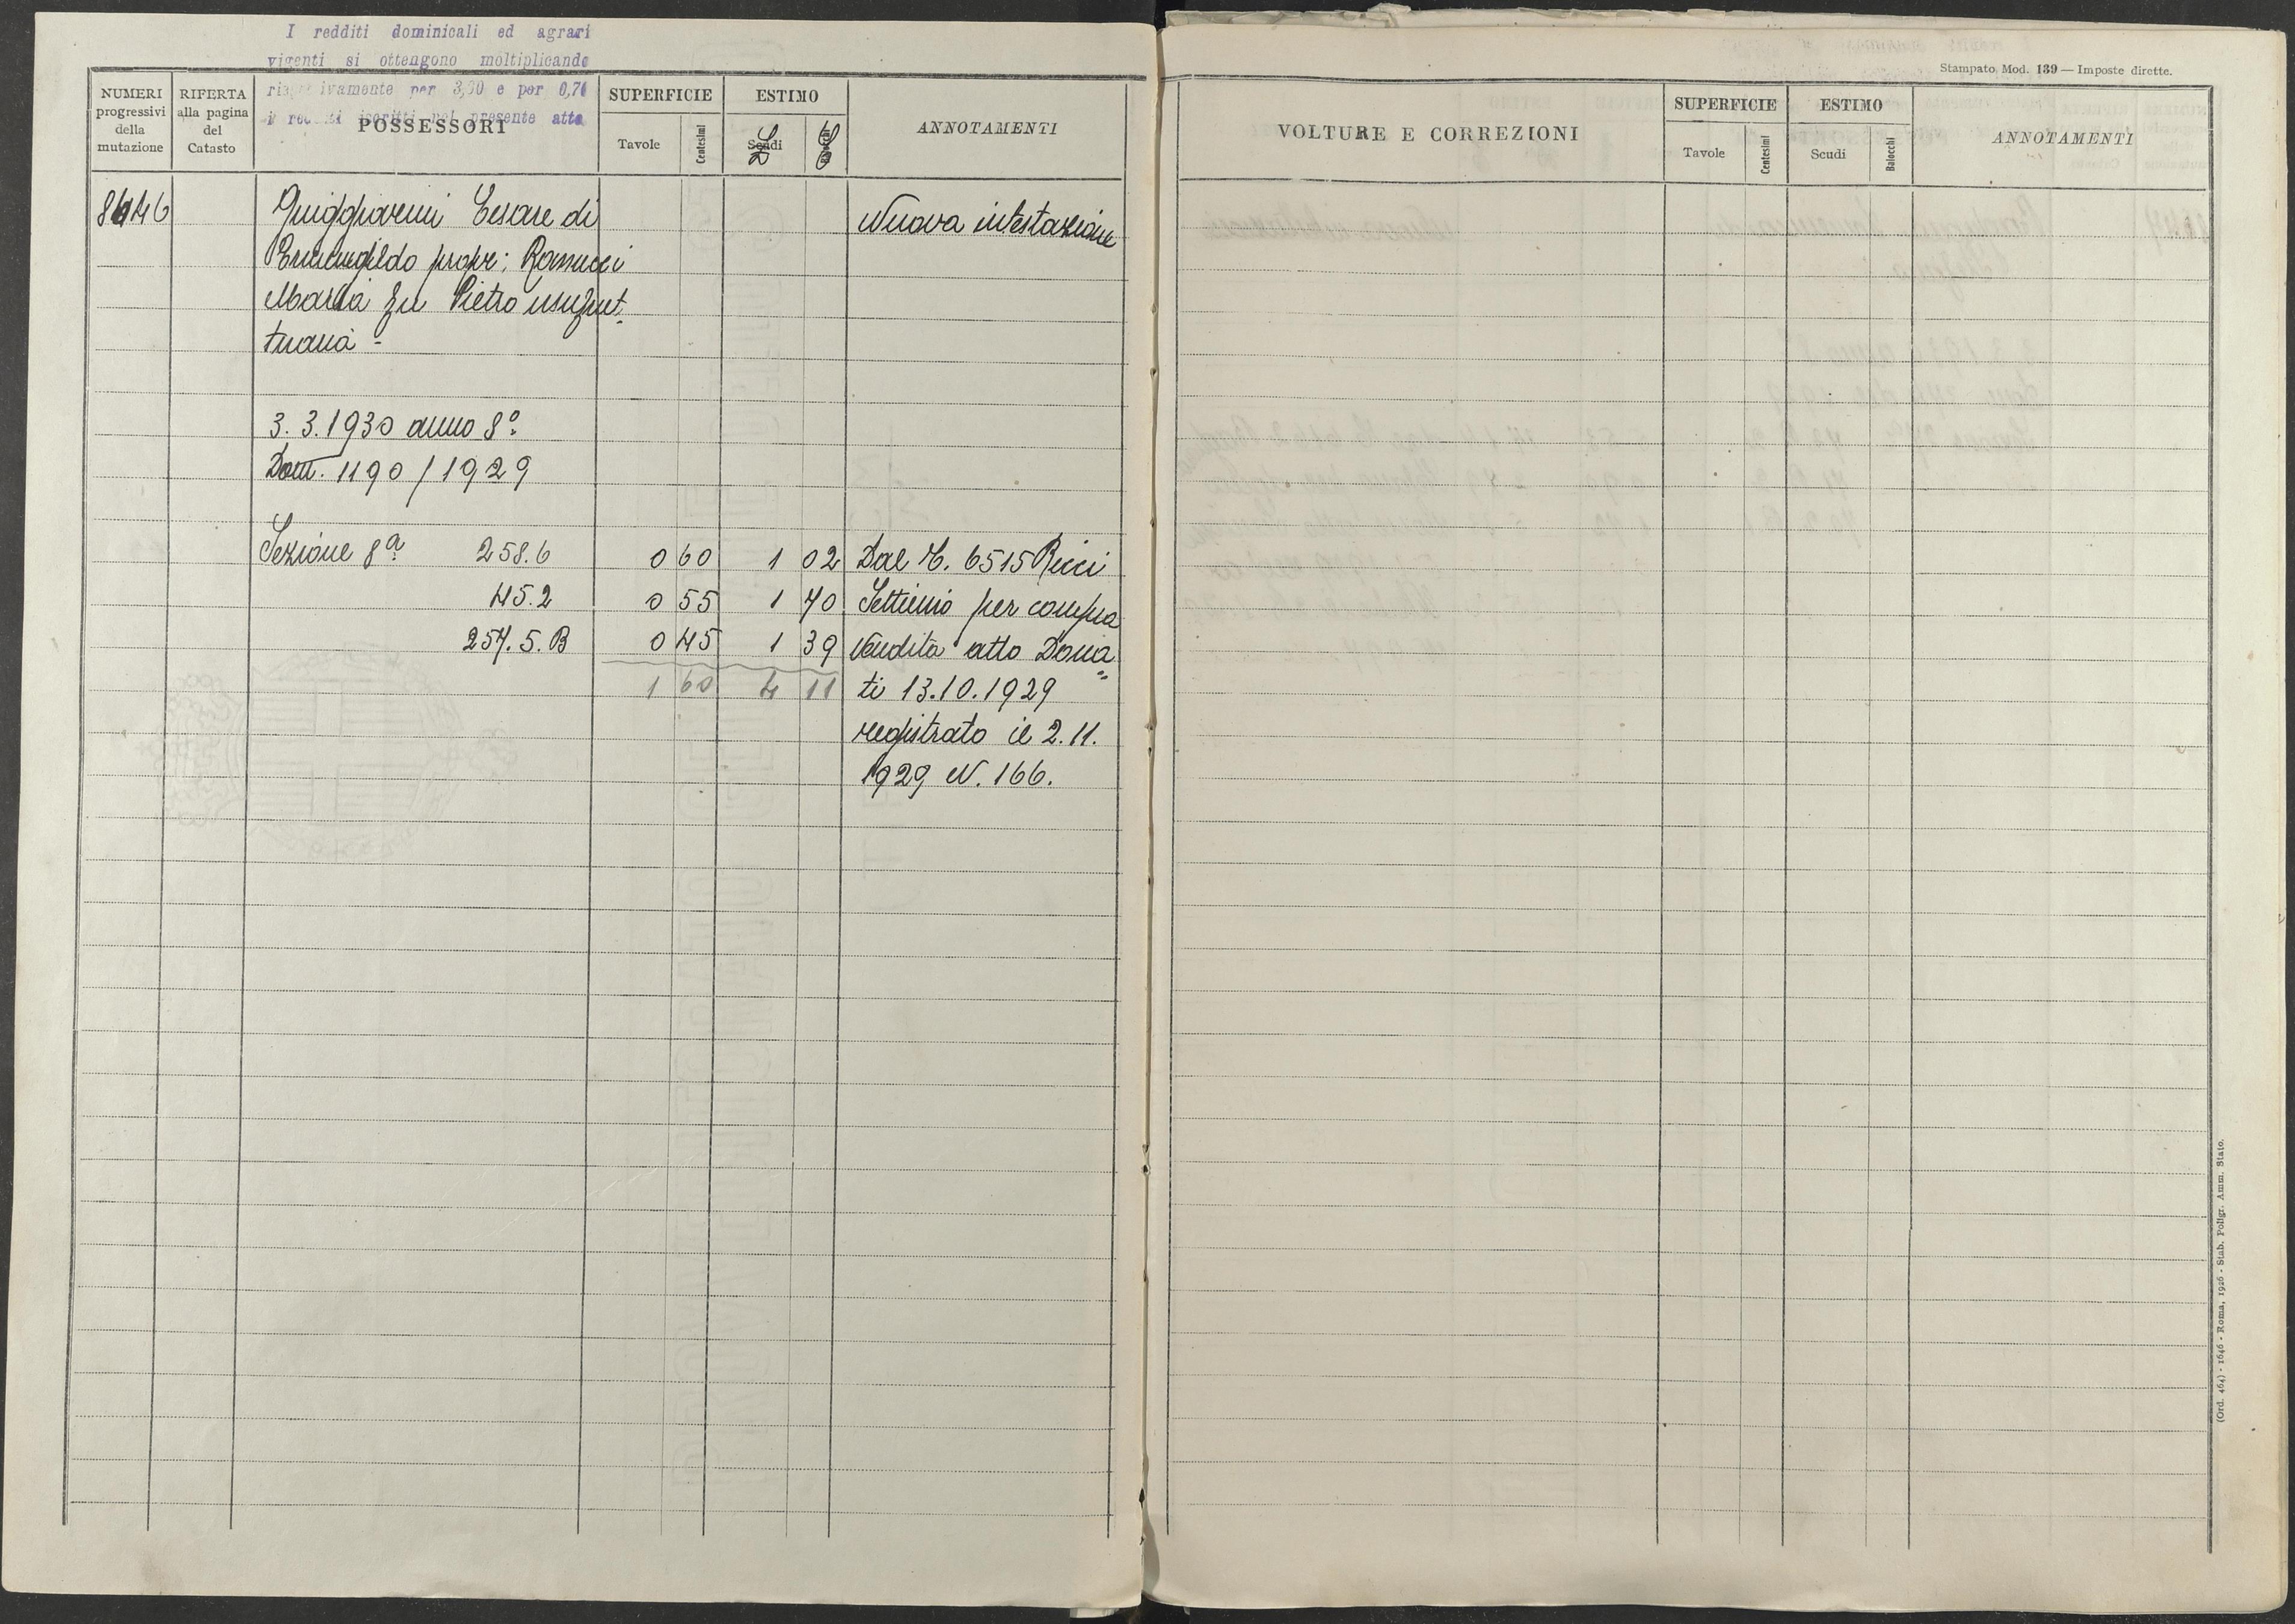 I redditi dominicali ed agrari
vigenti si ottengono moltiplicando
per 3,30 e per 0,70
presente atto
NUMERI
progressivi
della
mutazione
RIFERTA
alla pagina
del
Catasto
POSSESSORI
SUPERFICIE
Tavole
Centesimi
ESTIMO
Scudi
L
C
ANNOTAMENTI
Cesare di
Nuova intestazione
Ermenegildo propr: Ranucci
Maria fu Pietro usufrut=
tuaria -
3.3.1930 anno 8º
Dom. 1190/1929
Sezione 8ª 258.6 0 60 1 02 Dal N. 6515 Ricci
45.2 0 55 1 70 Settimio per compra
257.5.B 0 45 1 39 Vendita atto Dona=
1 60 4 11 ti 13.10.1929
registrato il 2.11.
1929 N. 166.
Stampato Mod. 139 — Imposte dirette.
VOLTURE E CORREZIONI
SUPERFICIE
Tavole
Centesimi
ESTIMO
Scudi
Baiocchi
ANNOTAMENTI
(Ord. 464) - 1646 - Roma, 1926 - Stab. Poligr. Amm. Stato.